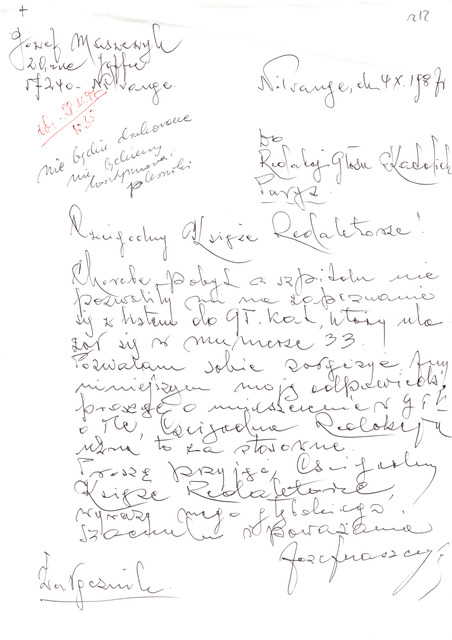 +
212
Józef Maszczyk
20, rue Joffre
57240 - Nilvange
Nilvange, dn 4.X.1987r
nie będzie drukowane
nie będziemy
kontynuować
polemiki
Do
Redakcji Głosu Katolick
Paryż
Czcigodny Księże Redaktorze!
Choroba, pobyt w szpitalu nie
pozwoliły mi na zapoznanie
się z listem do Gł. Kat., który uka
zał się w numerze 33.
Pozwalam sobie załączyć przy
niniejszym moją odpowiedź
proszę o umieszczenie w Gł. K
o ile, Czcigodna Redakcja
uzna to za stosowne.
Proszę przyjąć, Czcigodny
Księże Redaktorze,
wyrazy mego głębokiego
szacunku i poważania
Załącznik.